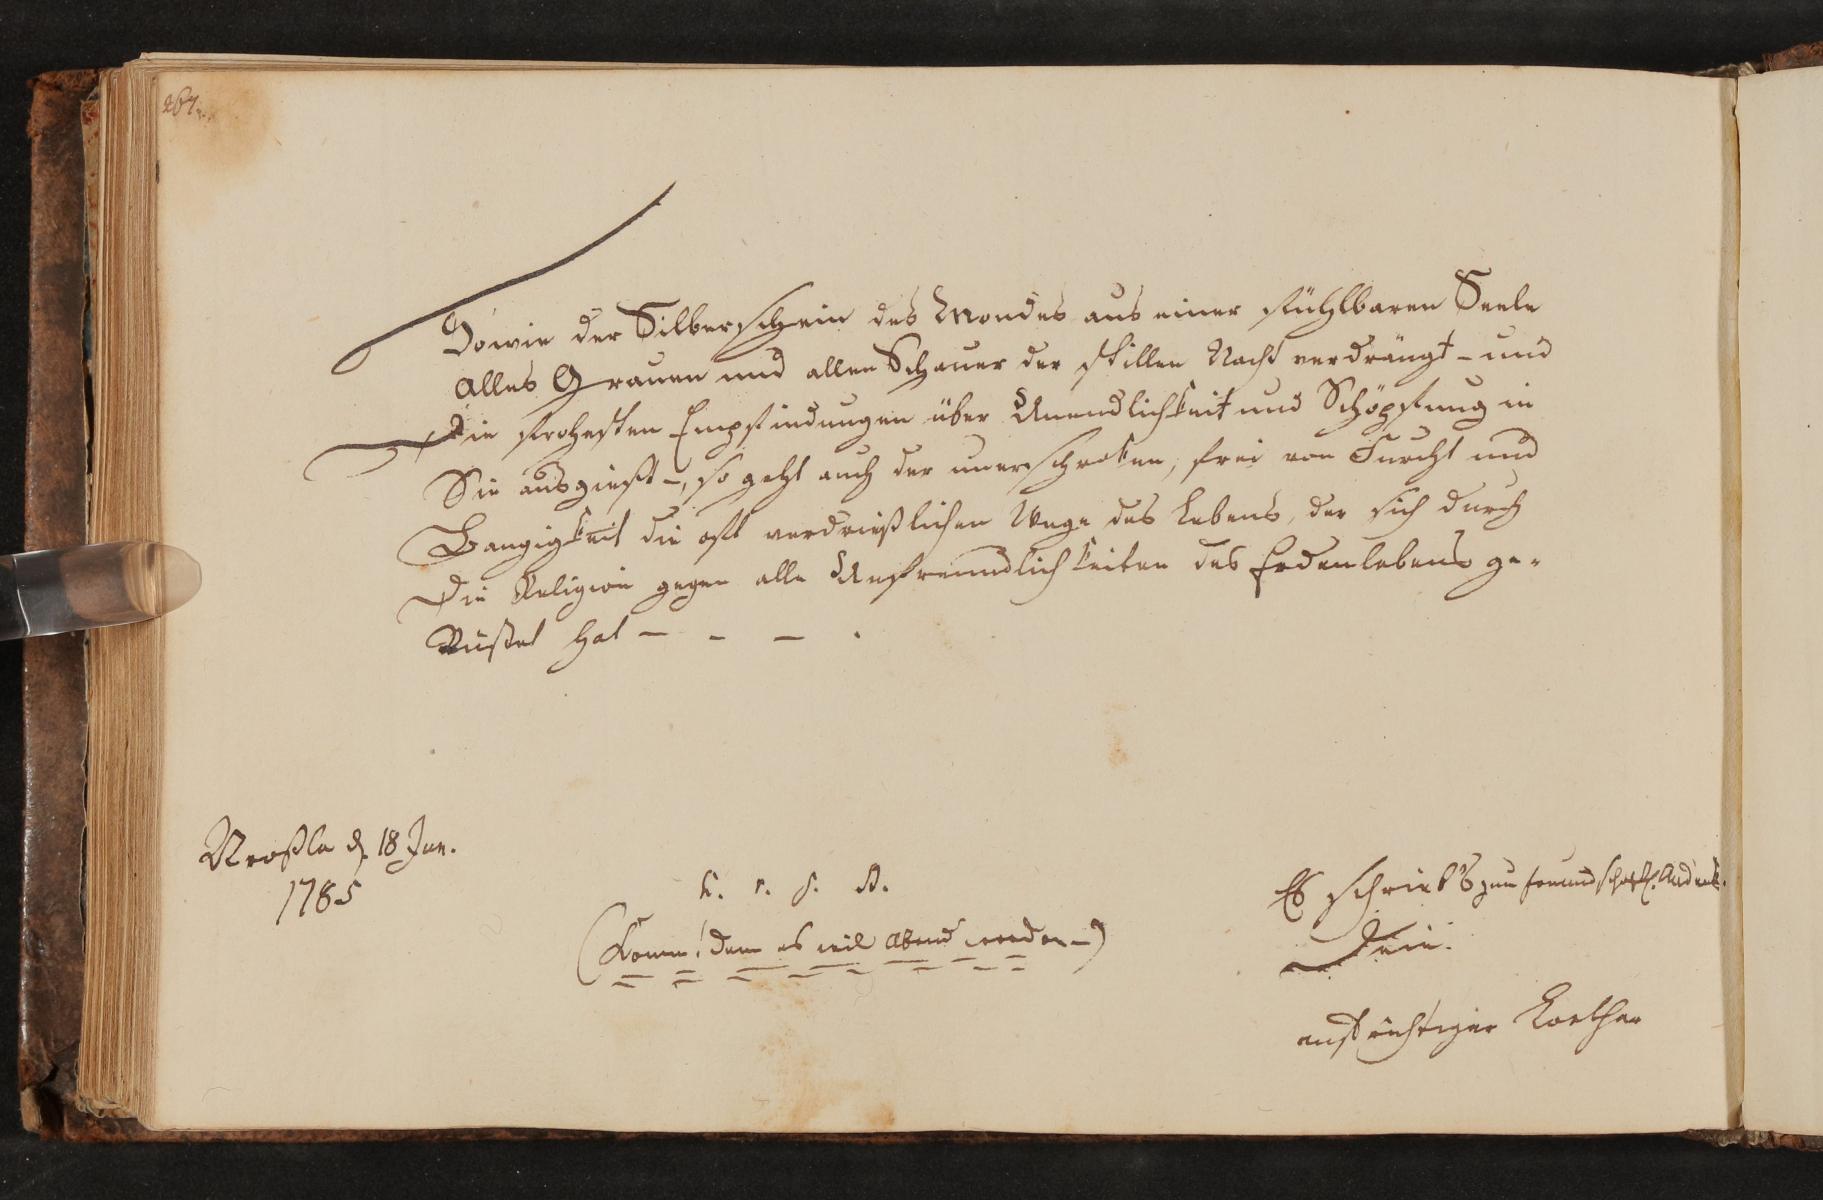 267.
Sowie der Silberschein des Mondes aus einer fühlbaren Seele
alles Grauen und allen Schauer der stillen Nacht verdrängt - und
die frohesten Empfindungen über Unendlichkeit und Schöpfung in
Sie ausgießt -, so geht auch der unerschroken, frei von Furcht und
Bangigkeit die oft verdrießlichen Wege des Lebens, der sich durch
die Religion gegen alle Unfreundlichkeiten des Erdenlebens ge-
Rüßtet hat - - - .
d. 18 Jun.
1785
(Komm! denn es wil Abend werden -)
Es schrieb's zum freundschaftl. Andenk.
Dein.
aufrichtiger